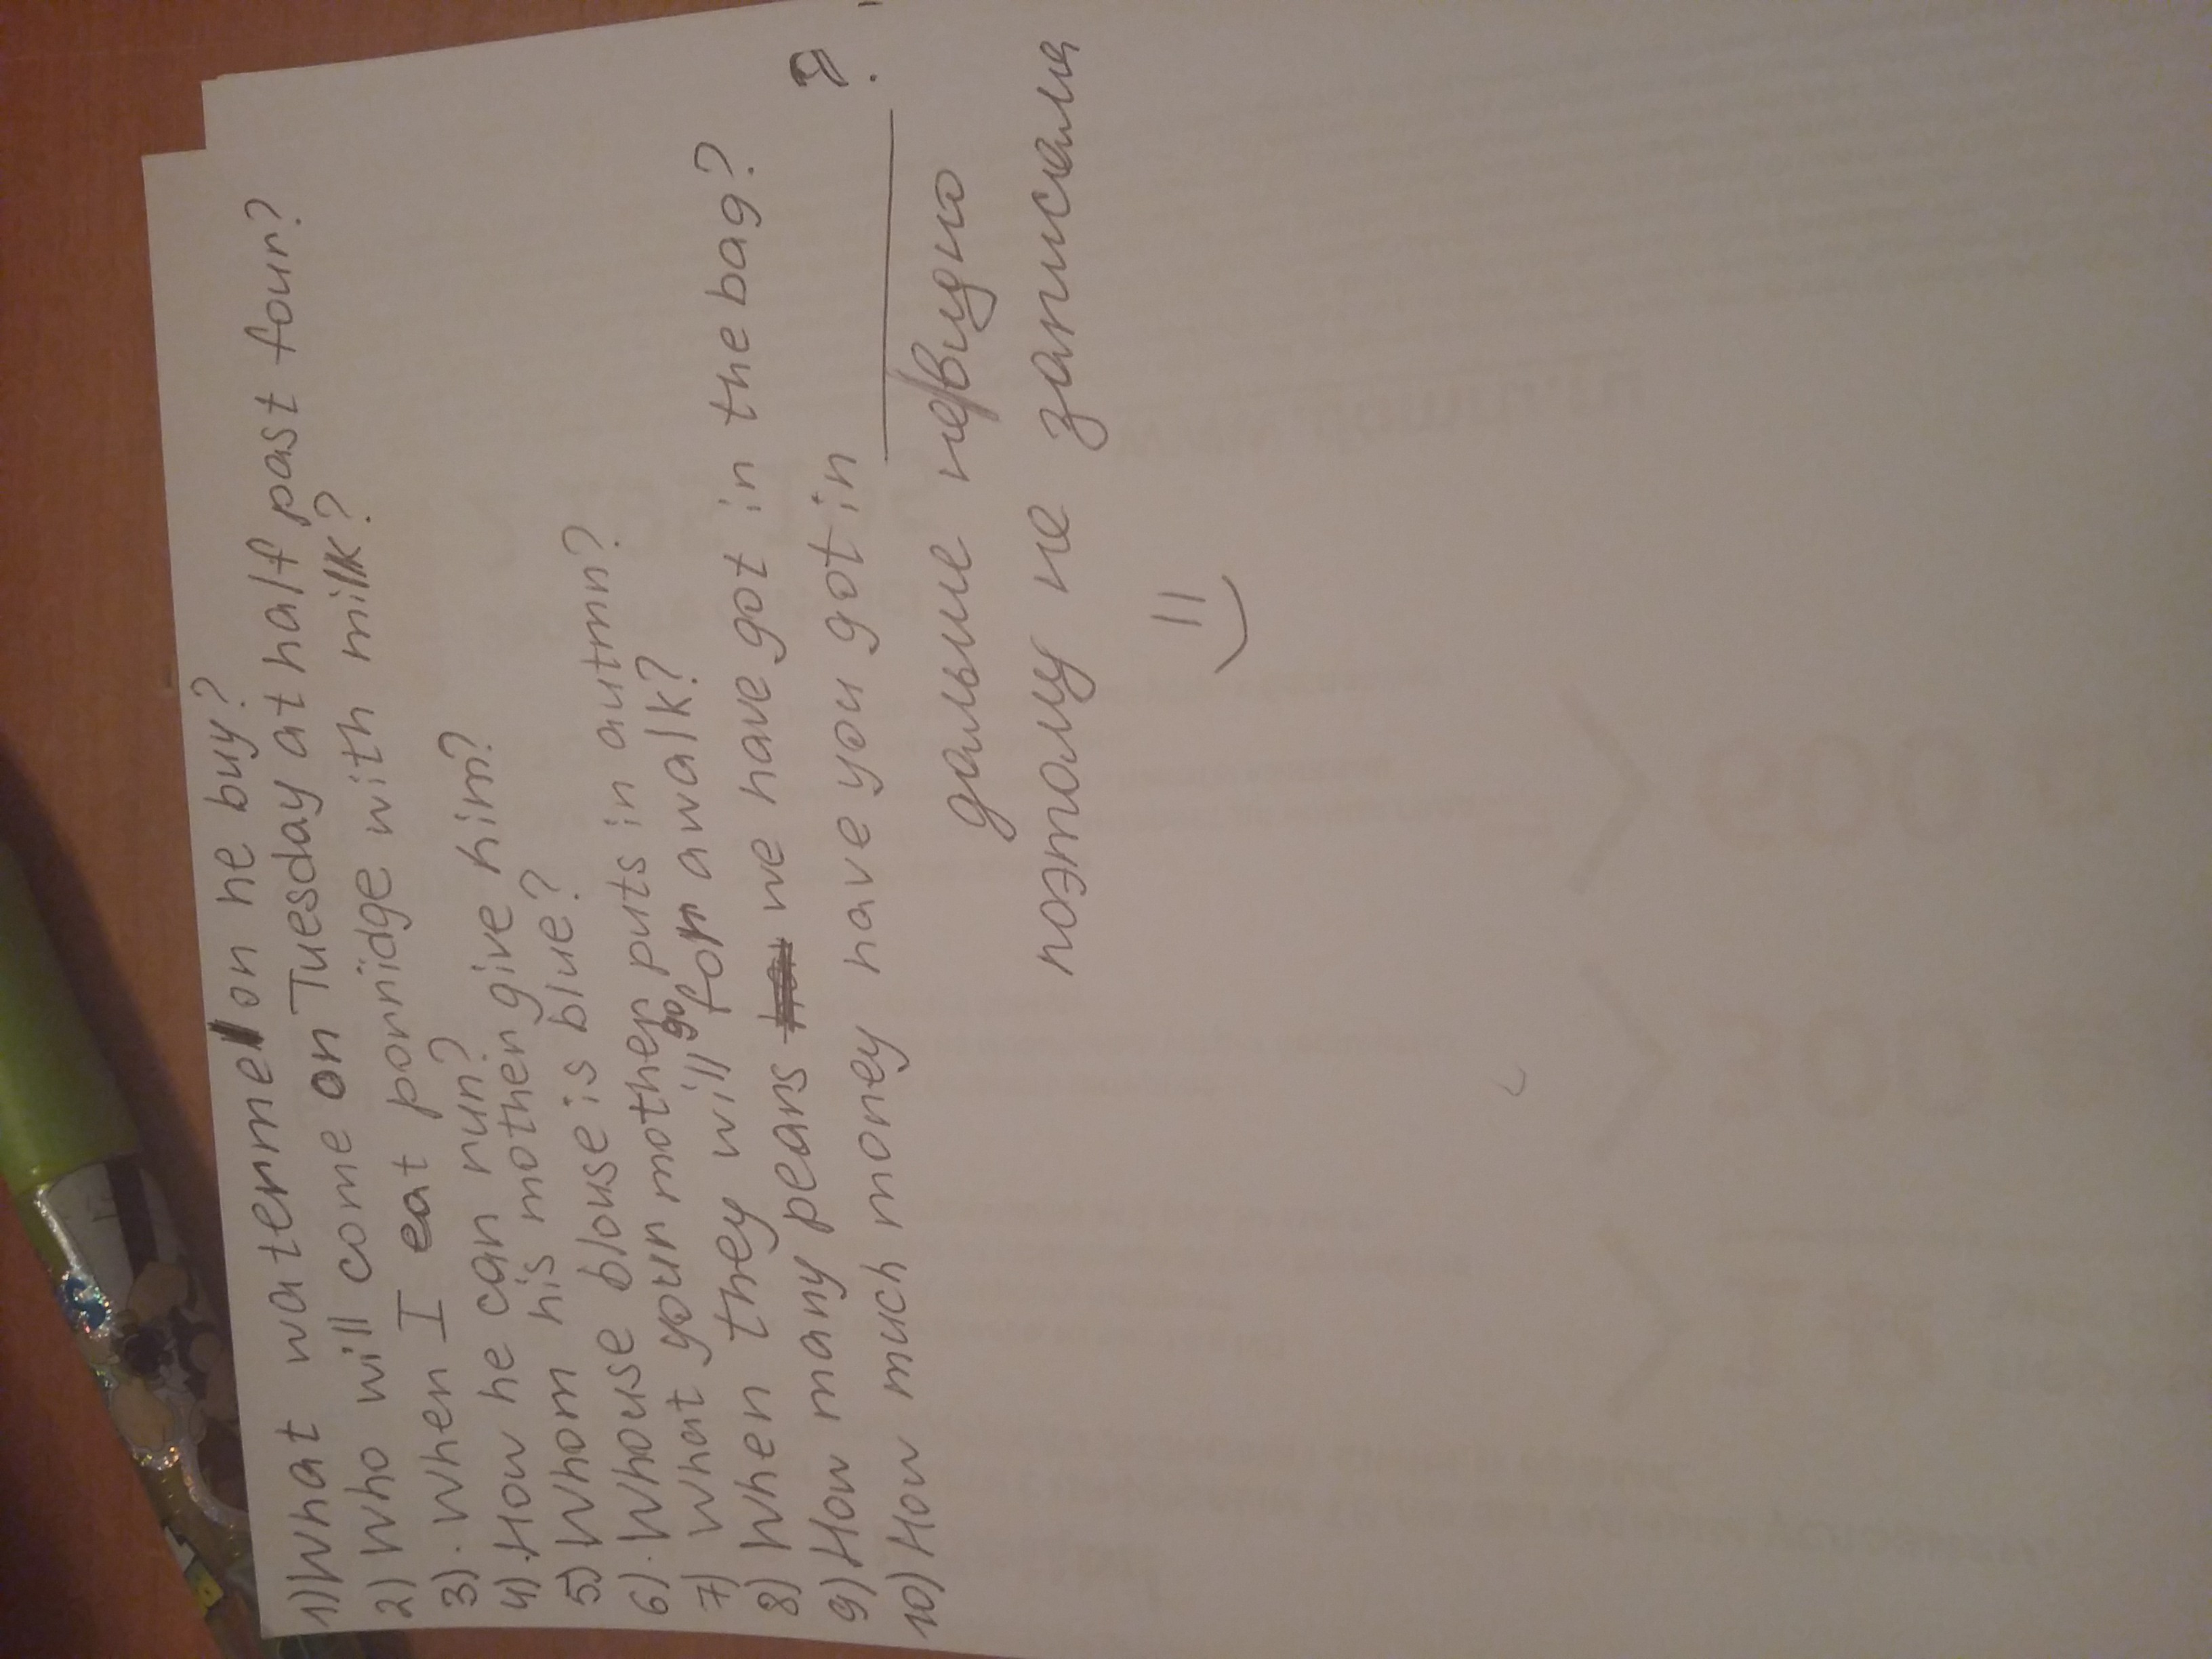 1) What watermelon he buy?
2) Who will come on Tuesday at half past four?
3). When I eat porridge with milk?
4). How he can run?
5) Whom his mother give him?
6). Whouse blouse is blue?
7) What your mother puts in autmn?
8) When they will go for a walk?
9) How many pears we have got in the bag?
10) How much money have you got in ________?
дальше не видно
поэтому не записала
=)